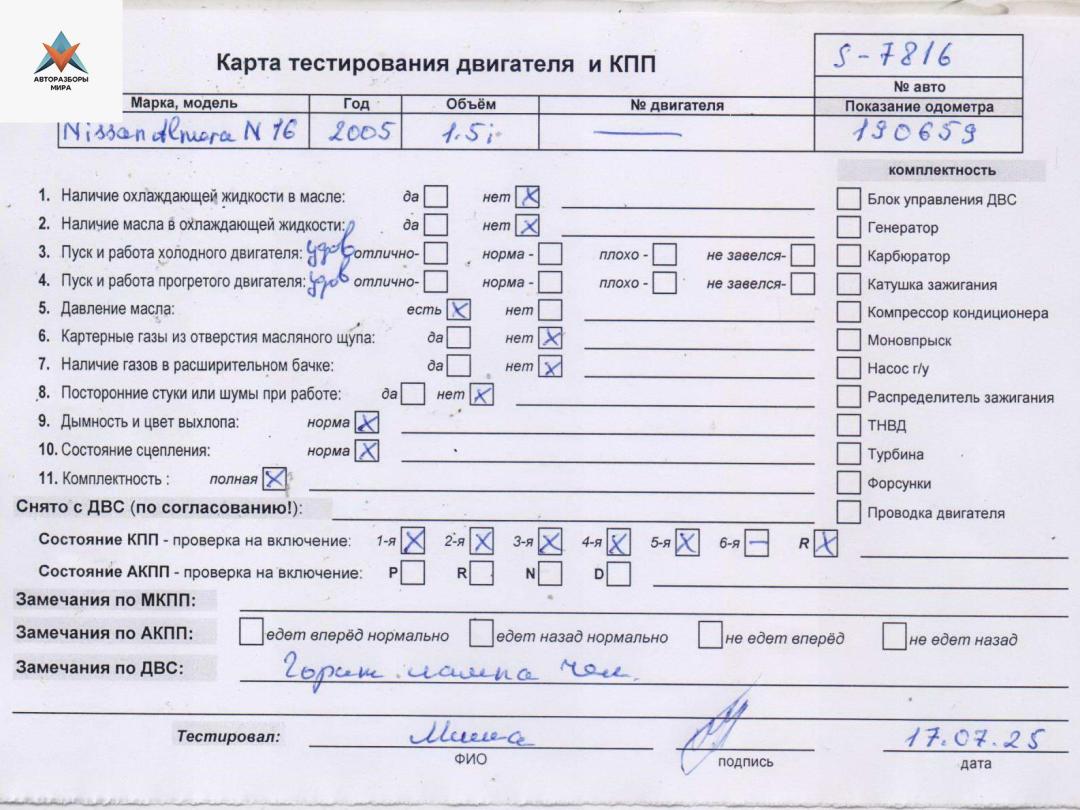 АВТОРАЗБОРЫ
МИРА
Карта тестирования двигателя и КПП
S-7816
№ авто
Марка, модель Год Объём № двигателя Показание одометра
Nissan Almera N 16 2005 1.5i — 190659
комплектность
1. Наличие охлаждающей жидкости в масле: да нет X
Блок управления ДВС
2. Наличие масла в охлаждающей жидкости: да нет X
Генератор
3. Пуск и работа холодного двигателя: удов отлично- норма - плохо - не завелся-
Карбюратор
4. Пуск и работа прогретого двигателя: удов отлично- норма - плохо - не завелся-
Катушка зажигания
5. Давление масла: есть X нет
Компрессор кондиционера
6. Картерные газы из отверстия масляного щупа: да нет X
Моновпрыск
7. Наличие газов в расширительном бачке: да нет X
Насос г/у
8. Посторонние стуки или шумы при работе: да нет X
Распределитель зажигания
9. Дымность и цвет выхлопа: норма X
ТНВД
10. Состояние сцепления: норма X
Турбина
11. Комплектность : полная X
Форсунки
Снято с ДВС (по согласованию!):
Проводка двигателя
Состояние КПП - проверка на включение: 1-я X 2-я X 3-я X 4-я X 5-я X 6-я — R X
Состояние АКПП - проверка на включение: P R N D
Замечания по МКПП:
Замечания по АКПП: едет вперёд нормально едет назад нормально не едет вперёд не едет назад
Замечания по ДВС: Горит лампа чек.
Тестировал: Миша 17.07.25
ФИО подпись дата